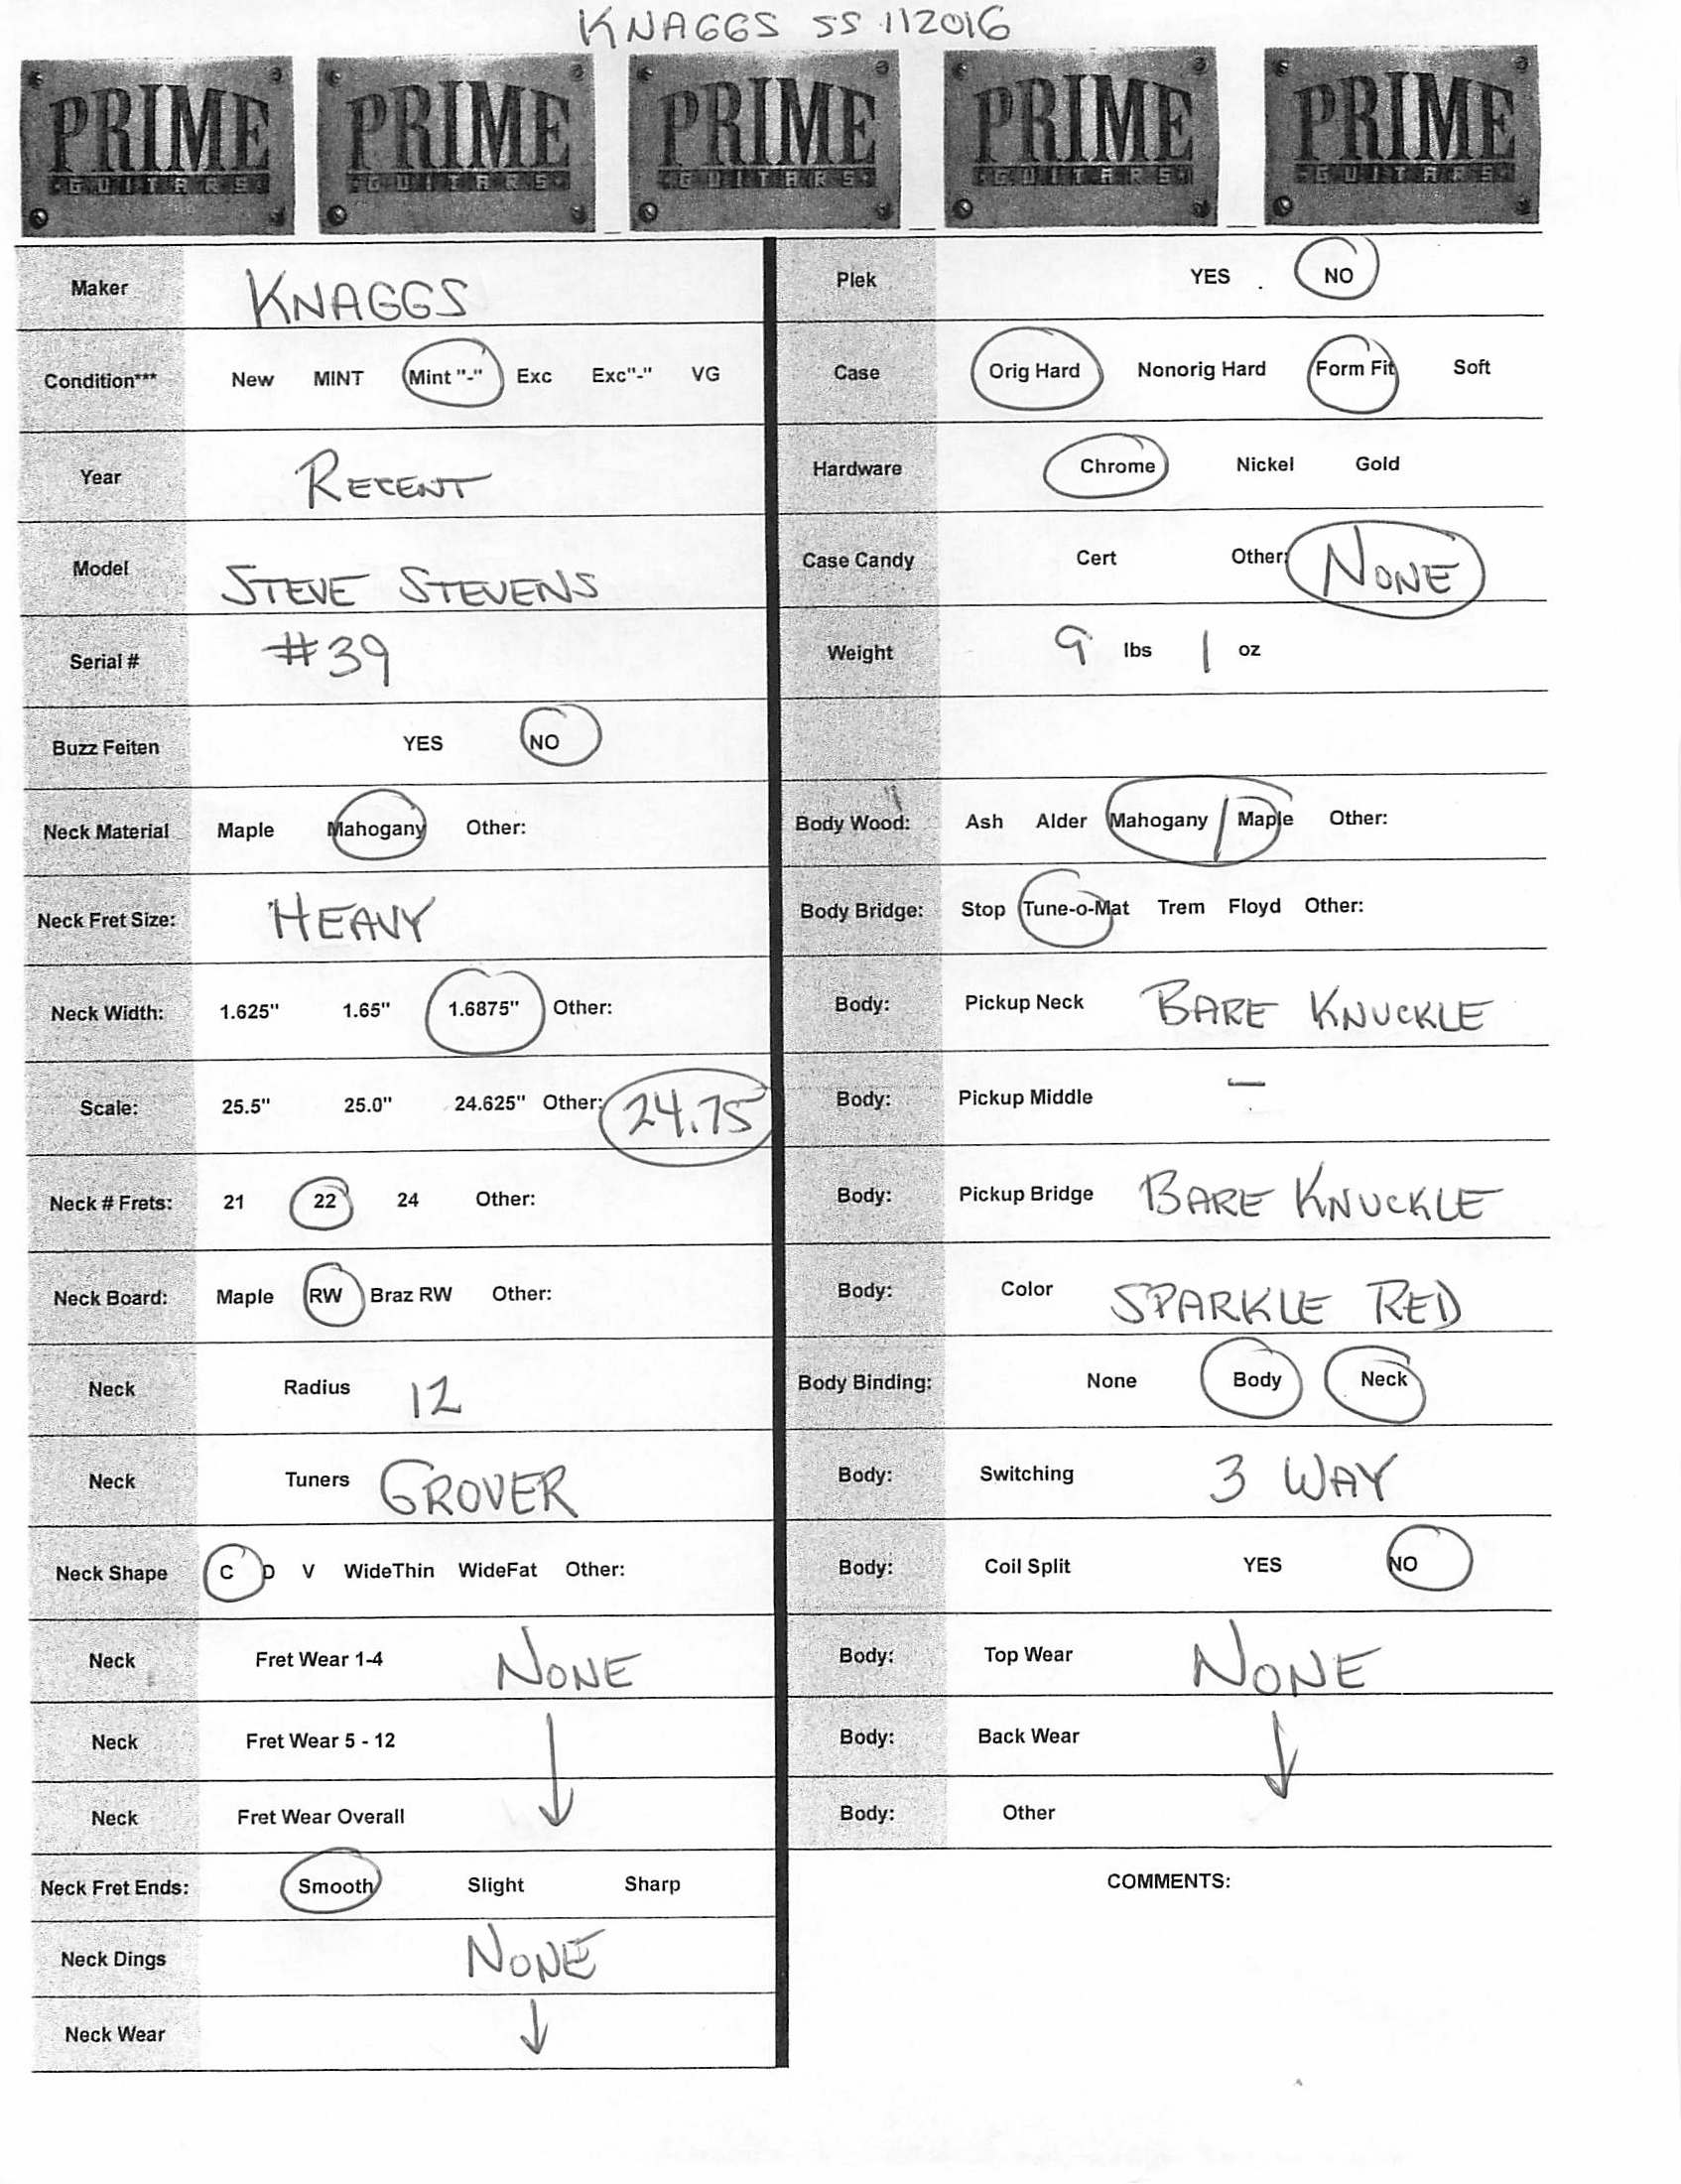 KNAGGS SS 112016
PRIME PRIME PRIME PRIME PRIME
GUITARS GUITARS GUITARS GUITARS GUITARS
Maker KNAGGS
Condition*** New MINT Mint "-" Exc Exc"-" VG
Year RECENT
Model STEVE STEVENS
Serial # #39
Buzz Feiten YES NO
Neck Material Maple Mahogany Other:
Neck Fret Size: HEAVY
Neck Width: 1.625" 1.65" 1.6875" Other:
Scale: 25.5" 25.0" 24.625" Other: 24.75
Neck # Frets: 21 22 24 Other:
Neck Board: Maple RW Braz RW Other:
Neck Radius 12
Neck Tuners GROVER
Neck Shape C D V WideThin WideFat Other:
Neck Fret Wear 1-4 NONE
Neck Fret Wear 5 - 12
Neck Fret Wear Overall
Neck Fret Ends: Smooth Slight Sharp
Neck Dings NONE
Neck Wear
Plek YES NO
Case Orig Hard Nonorig Hard Form Fit Soft
Hardware Chrome Nickel Gold
Case Candy Cert Other: NONE
Weight 9 lbs 1 oz
Body Wood: Ash Alder Mahogany / Maple Other:
Body Bridge: Stop Tune-o-Mat Trem Floyd Other:
Body: Pickup Neck BARE KNUCKLE
Body: Pickup Middle —
Body: Pickup Bridge BARE KNUCKLE
Body: Color SPARKLE RED
Body Binding: None Body Neck
Body: Switching 3 WAY
Body: Coil Split YES NO
Body: Top Wear NONE
Body: Back Wear
Body: Other
COMMENTS: